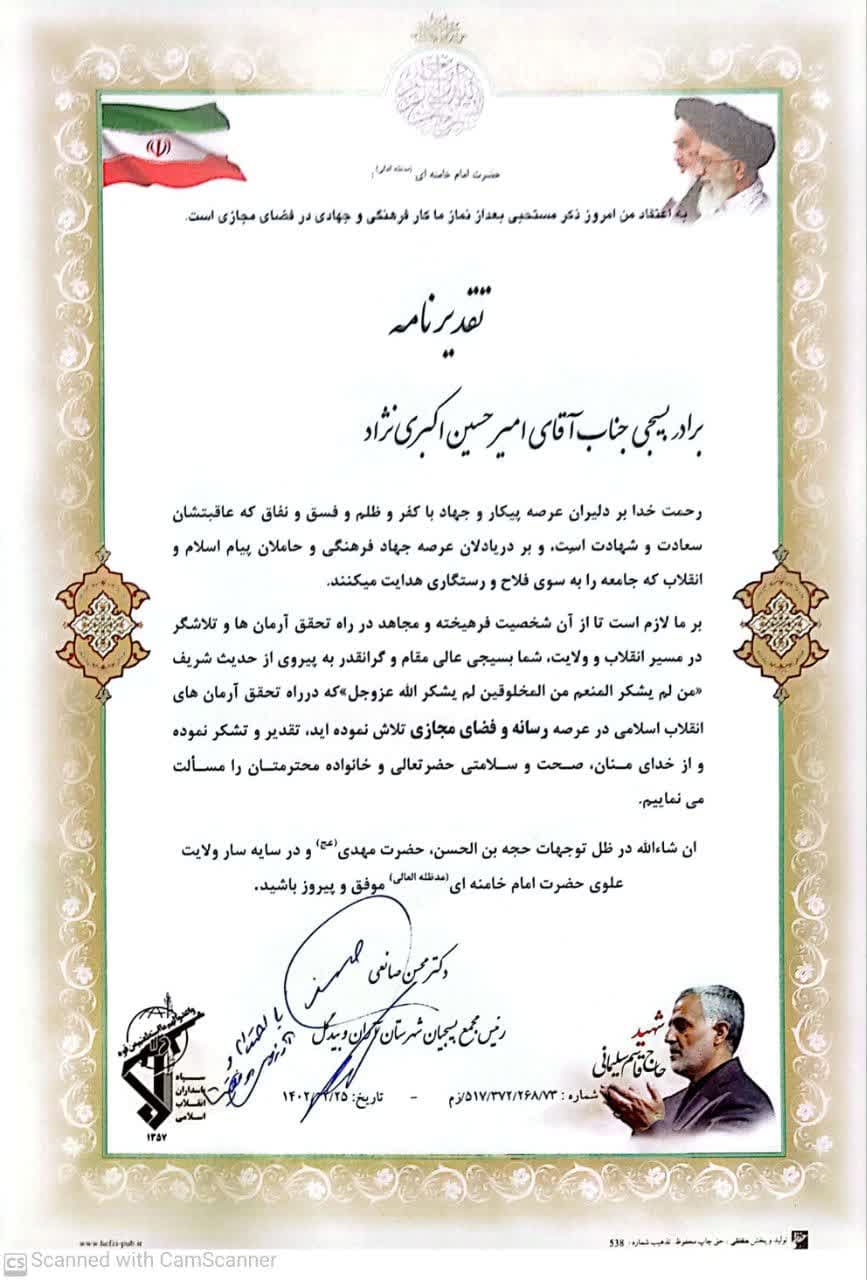 حضرت امام خامنه ای (مدظله العالی):
به اعتقاد من امروز ذکر مستحبی بعداز نماز ما کار فرهنگی و جهادی در فضای مجازی است.
تقدیرنامه
برادر بسیجی جناب آقای امیرحسین اکبری نژاد
رحمت خدا بر دلیران عرصه پیکار و جهاد با کفر و ظلم و فسق و نفاق که عاقبتشان
سعادت و شهادت است، و بر دریادلان عرصه جهاد فرهنگی و حاملان پیام اسلام و
انقلاب که جامعه را به سوی فلاح و رستگاری هدایت میکنند.
بر ما لازم است تا از آن شخصیت فرهیخته و مجاهد در راه تحقق آرمان ها و تلاشگر
در مسیر انقلاب و ولایت، شما بسیجی عالی مقام و گرانقدر به پیروی از حدیث شریف
«من لم یشکر المنعم من المخلوقین لم یشکر الله عزوجل»که درراه تحقق آرمان های
انقلاب اسلامی در عرصه رسانه و فضای مجازی تلاش نموده اید، تقدیر و تشکر نموده
و از خدای منان، صحت و سلامتی حضرتعالی و خانواده محترمتان را مسألت
می نماییم.
ان شاءالله در ظل توجهات حجه بن الحسن، حضرت مهدی(عج) و در سایه سار ولایت
علوی حضرت امام خامنه ای(مدظله العالی) موفق و پیروز باشید.
دکتر محسن صانعی
رئیس مجمع بسیجیان شهرستان آران و بیدگل
شماره : ۵۱۷/۳۷۲/۲۶۸/۷۳/زم - تاریخ:
شهید
حاج قاسم سلیمانی
سپاه
پاسداران
انقلاب
اسلامی
۱۳۵۷
www.hefzi-pub.ir
تولید و پخش حفظی : حق چاپ محفوظ تذهیب شماره : 538
CS Scanned with CamScanner